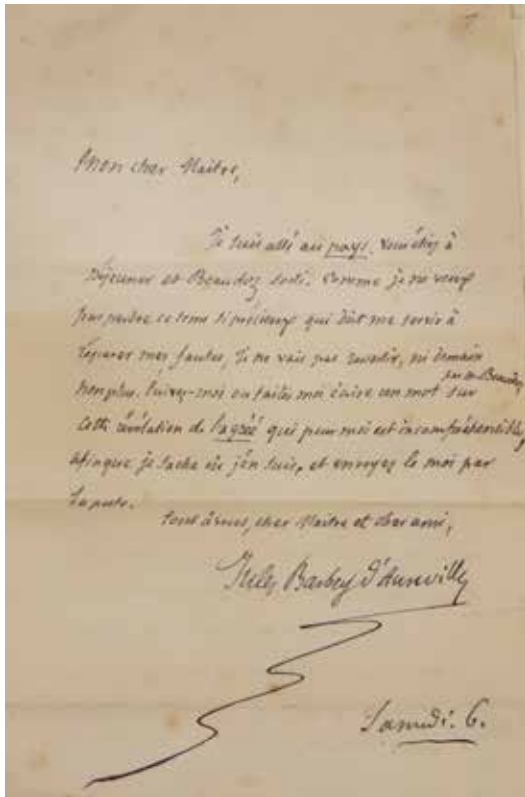 Mon cher Maître,
Je suis allé au pays. Vous étiez à
Déjeuner et Beaudoz sorti. Comme je ne veux
pas perdre ce tems si précieux qui doit me servir à
réparer mes fautes, Je ne vais pas revenir, ni demain
non plus. Ecrivez-moi ou faites moi écrire un mot par M. Beaudoz sur
cette révélation de l'agréé qui pour moi est incompréhensible,
afin que je sache où j'en suis, et envoyez le moi par
la poste.
tout à vous, cher Maître et cher ami,
Jules Barbey d'Aurevilly
Samedi. 6.